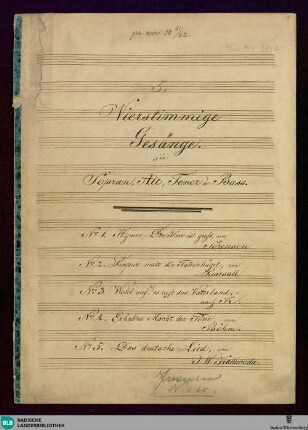 5.
Vierstimmige
Gesänge.
für
Sopran, Alt, Tenor u. Bass.
No. 1. Hymne, Der Herr ist groß, von
Sörensen
No. 2. von
Pearsall.
No. 3. Wohl auf, es ruft das Vaterland,
No. 4. Erhabne Macht der Töne, von
Böhm.
No. 5. Das deutsche Lied, von
J. W. Kalliwoda.
BLB
BADISCHE
LANDESBIBLIOTHEK
Baden-Württemberg